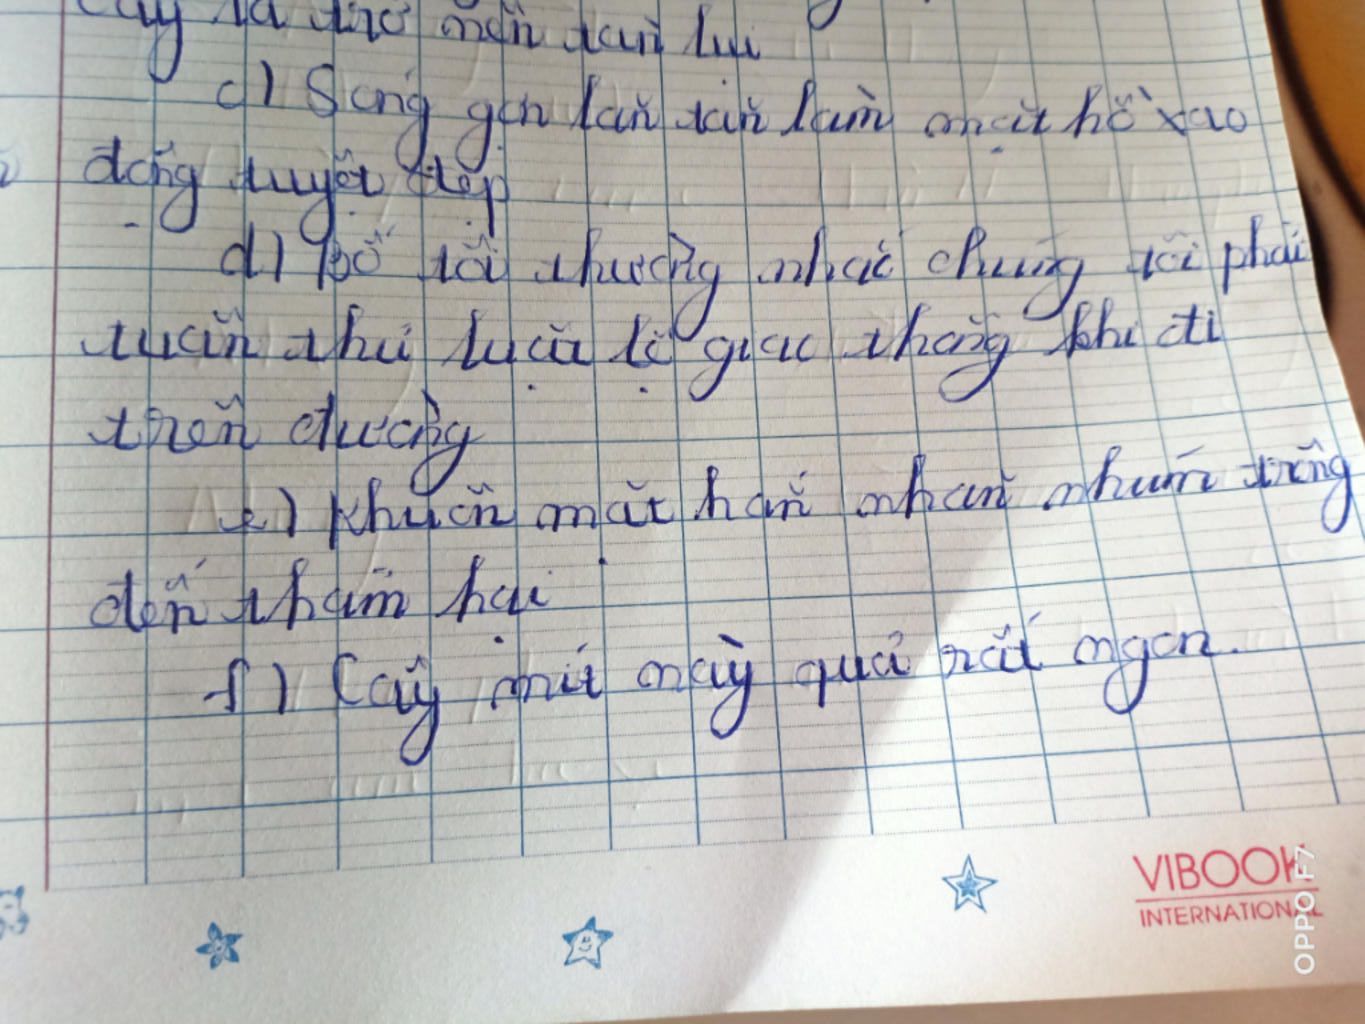 cây lá trở nên tàn lụi
c) Sóng gợn lăn tăn làm mặt hồ xao
động tuyệt đẹp
d) Bố tôi thường nhắc chúng tôi phải
tuân thủ luật lệ giao thông khi đi
trên đường
e) Khuôn mặt hắn nhăn nhúm trông
đến thảm hại
f) Cây mít này quả rất ngon.
VIBOOK
INTERNATIONAL
OPPO F7